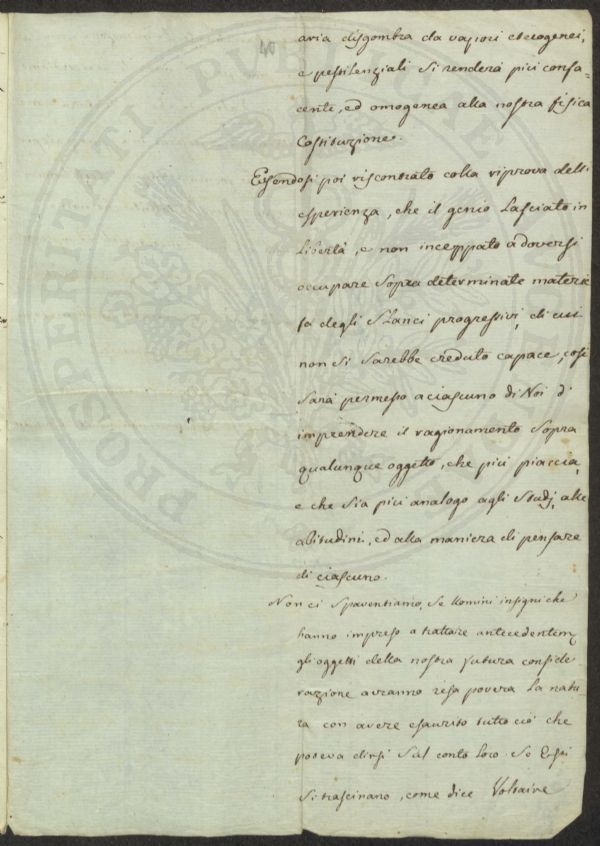 40
aria disgombra da vapori eterogenei,
e pestilenziali si renderà più confa=
cente, ed omogenea alla nostra fisica
Costituzione.
Essendosi poi riscontrato colla riprova dell'
esperienza, che il genio lasciato in
libertà, e non inceppato a doversi
occupare sopra determinate materie
fa degli slanci progressivi, di cui
non si sarebbe creduto capace, così
sarà permesso a ciascuno di Noi d'
imprendere il ragionamento sopra
qualunque oggetto, che più piaccia,
e che sia più analogo agli studj, alle
abitudini, ed alla maniera di pensare
di ciascuno.
Non ci spaventiamo, se Uomini insigni che
hanno impreso a trattare antecedentem
gli oggetti della nostra futura conside
razione avranno resa povera la natu
ra con avere esaurito tutto ciò che
poteva dirsi sul conto loro. Se Essi
si trascinano, come dice Voltaire
PROSPERITATI PUBLICAE